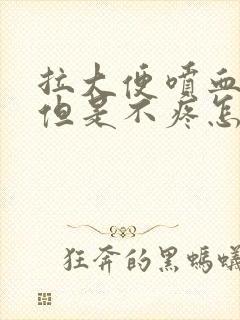 拉大便喷血
但是不疼怎
狂奔的黑蚂蟻